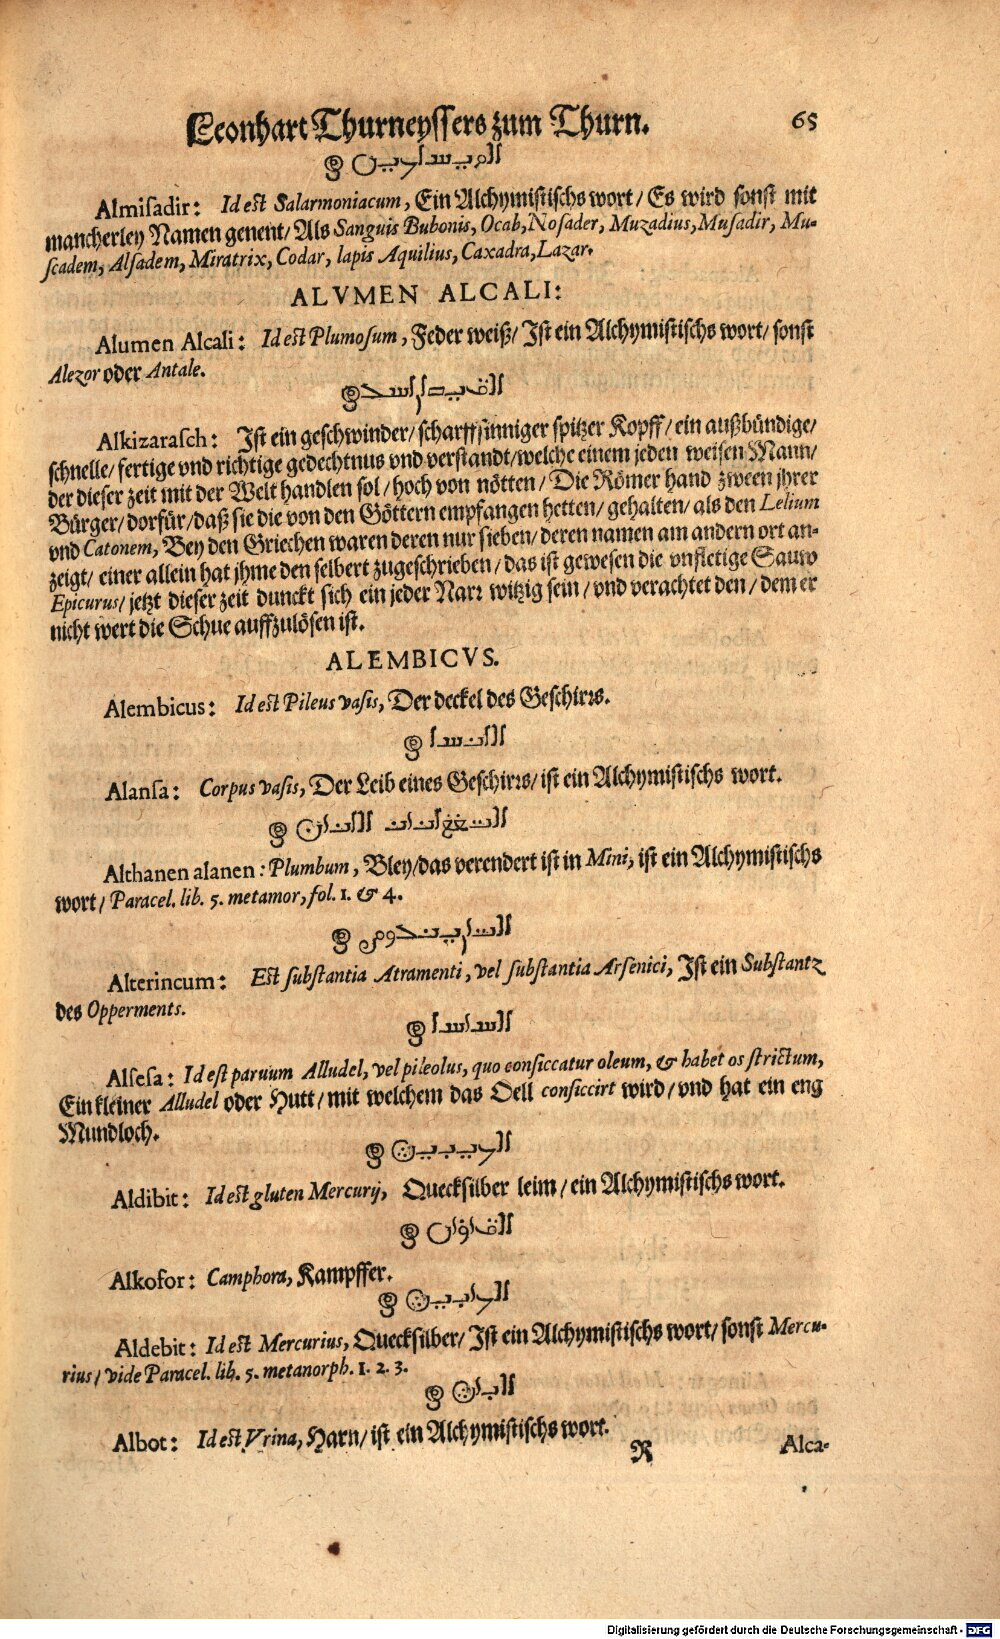 Leonhart Thurneyssers zum Thurn. 65
Almisadir: Id est Salarmoniacum, Ein Alchymistischs wort/ Es wird sonst mit
mancherley Namen genent/ Als Sanguis Bubonis, Ocab, Nosader, Muzadius, Musadir, Mu-
scadem, Alsadem, Miratrix, Codar, lapis Aquilius, Caxadra, Lazar.
ALVMEN ALCALI:
Alumen Alcali: Id est Plumosum, Feder weiß/ Ist ein Alchymistischs wort/ sonst
Alezor oder Antale.
Alkizarasch: Ist ein geschwinder/ scharffsinniger spitzer Kopff/ ein außbündige/
schnelle/ fertige vnd richtige gedechtnus vnd verstandt/ welche einem jeden weisen Mann/
der dieser zeit mit der Welt handlen sol/ hoch von nötten/ Die Römer hand zween jhrer
Bürger/ dorfür/ daß sie die von den Göttern empfangen hetten/ gehalten/ als den Lelium
vnd Catonem, Bey den Griechen waren deren nur sieben/ deren namen am andern ort an-
zeigt/ einer allein hat jhme den selbert zugeschrieben/ das ist gewesen die vnfletige Sauw
Epicurus/ jetzt dieser zeit dunckt sich ein jeder Narr witzig sein/ vnd verachtet den/ dem er
nicht wert die Schue auffzulösen ist.
ALEMBICVS.
Alembicus: Id est Pileus vasis, Der deckel des Geschirrs.
Alansa: Corpus vasis, Der Leib eines Geschirrs/ ist ein Alchymistischs wort.
Althanen alanen: Plumbum, Bley/ das verendert ist in Mini, ist ein Alchymistischs
wort/ Paracel. lib. 5. metamor, fol. 1. & 4.
Alterincum: Est substantia Atramenti, vel substantia Arsenici, Ist ein Substantz
des Opperments.
Alsesa: Id est paruum Alludel, vel pileolus, quo consiccatur oleum, & habet os strictum,
Ein kleiner Alludel oder Hutt/ mit welchem das Oell consiccirt wird/ vnd hat ein eng
Mundloch.
Aldibit: Id est gluten Mercurij, Quecksilber leim/ ein Alchymistischs wort.
Alkofor: Camphora, Kampffer.
Aldebit: Id est Mercurius, Quecksilber/ Ist ein Alchymistischs wort/ sonst Mercu-
rius/ vide Paracel. lib. 5. metanorph. 1. 2. 3.
Albot: Id est Vrina, Harn/ ist ein Alchymistischs wort.
R Alca-
Digitalisierung gefördert durch die Deutsche Forschungsgemeinschaft - DFG